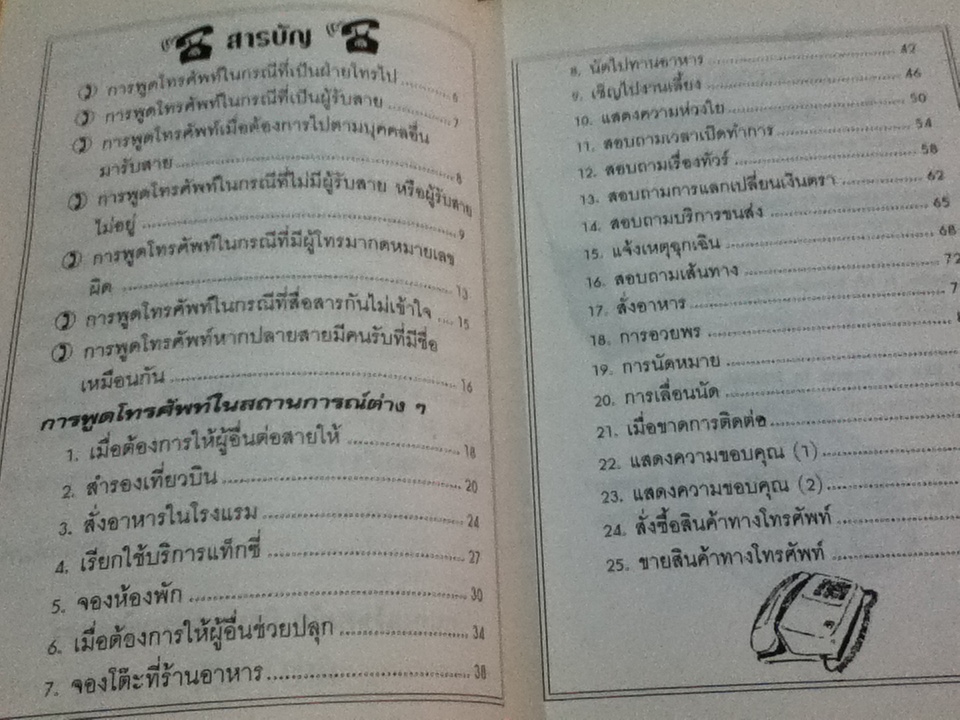 สารบัญ
การพูดโทรศัพท์ในกรณีที่เป็นฝ่ายโทรไป ........ 6
การพูดโทรศัพท์ในกรณีที่เป็นผู้รับสาย ........ 7
การพูดโทรศัพท์เมื่อต้องการไปตามบุคคลอื่น
มารับสาย ........ 8
การพูดโทรศัพท์ในกรณีที่ไม่มีผู้รับสาย หรือผู้รับสาย
ไม่อยู่ ........ 9
การพูดโทรศัพท์ในกรณีที่มีผู้โทรมากดหมายเลข
ผิด ........ 13
การพูดโทรศัพท์ในกรณีที่สื่อสารกันไม่เข้าใจ .... 15
การพูดโทรศัพท์หากปลายสายมีคนรับที่มีชื่อ
เหมือนกัน ........ 16
การพูดโทรศัพท์ในสถานการณ์ต่าง ๆ
1. เมื่อต้องการให้ผู้อื่นต่อสายให้ ........ 18
2. สำรองเที่ยวบิน ........ 20
3. สั่งอาหารในโรงแรม ........ 24
4. เรียกใช้บริการแท็กซี่ ........ 27
5. จองห้องพัก ........ 30
6. เมื่อต้องการให้ผู้อื่นช่วยปลุก ........ 34
7. จองโต๊ะที่ร้านอาหาร ........ 38
8. นัดไปทานอาหาร ........ 42
9. เชิญไปงานเลี้ยง ........ 46
10. แสดงความห่วงใย ........ 50
11. สอบถามเวลาเปิดทำการ ........ 54
12. สอบถามเรื่องทัวร์ ........ 58
13. สอบถามการแลกเปลี่ยนเงินตรา ........ 62
14. สอบถามบริการขนส่ง ........ 65
15. แจ้งเหตุฉุกเฉิน ........ 68
16. สอบถามเส้นทาง ........ 72
17. สั่งอาหาร ........
18. การอวยพร ........
19. การนัดหมาย ........
20. การเลื่อนนัด ........
21. เมื่อขาดการติดต่อ ........
22. แสดงความขอบคุณ (1) ........
23. แสดงความขอบคุณ (2) ........
24. สั่งซื้อสินค้าทางโทรศัพท์ ........
25. ขายสินค้าทางโทรศัพท์ ........